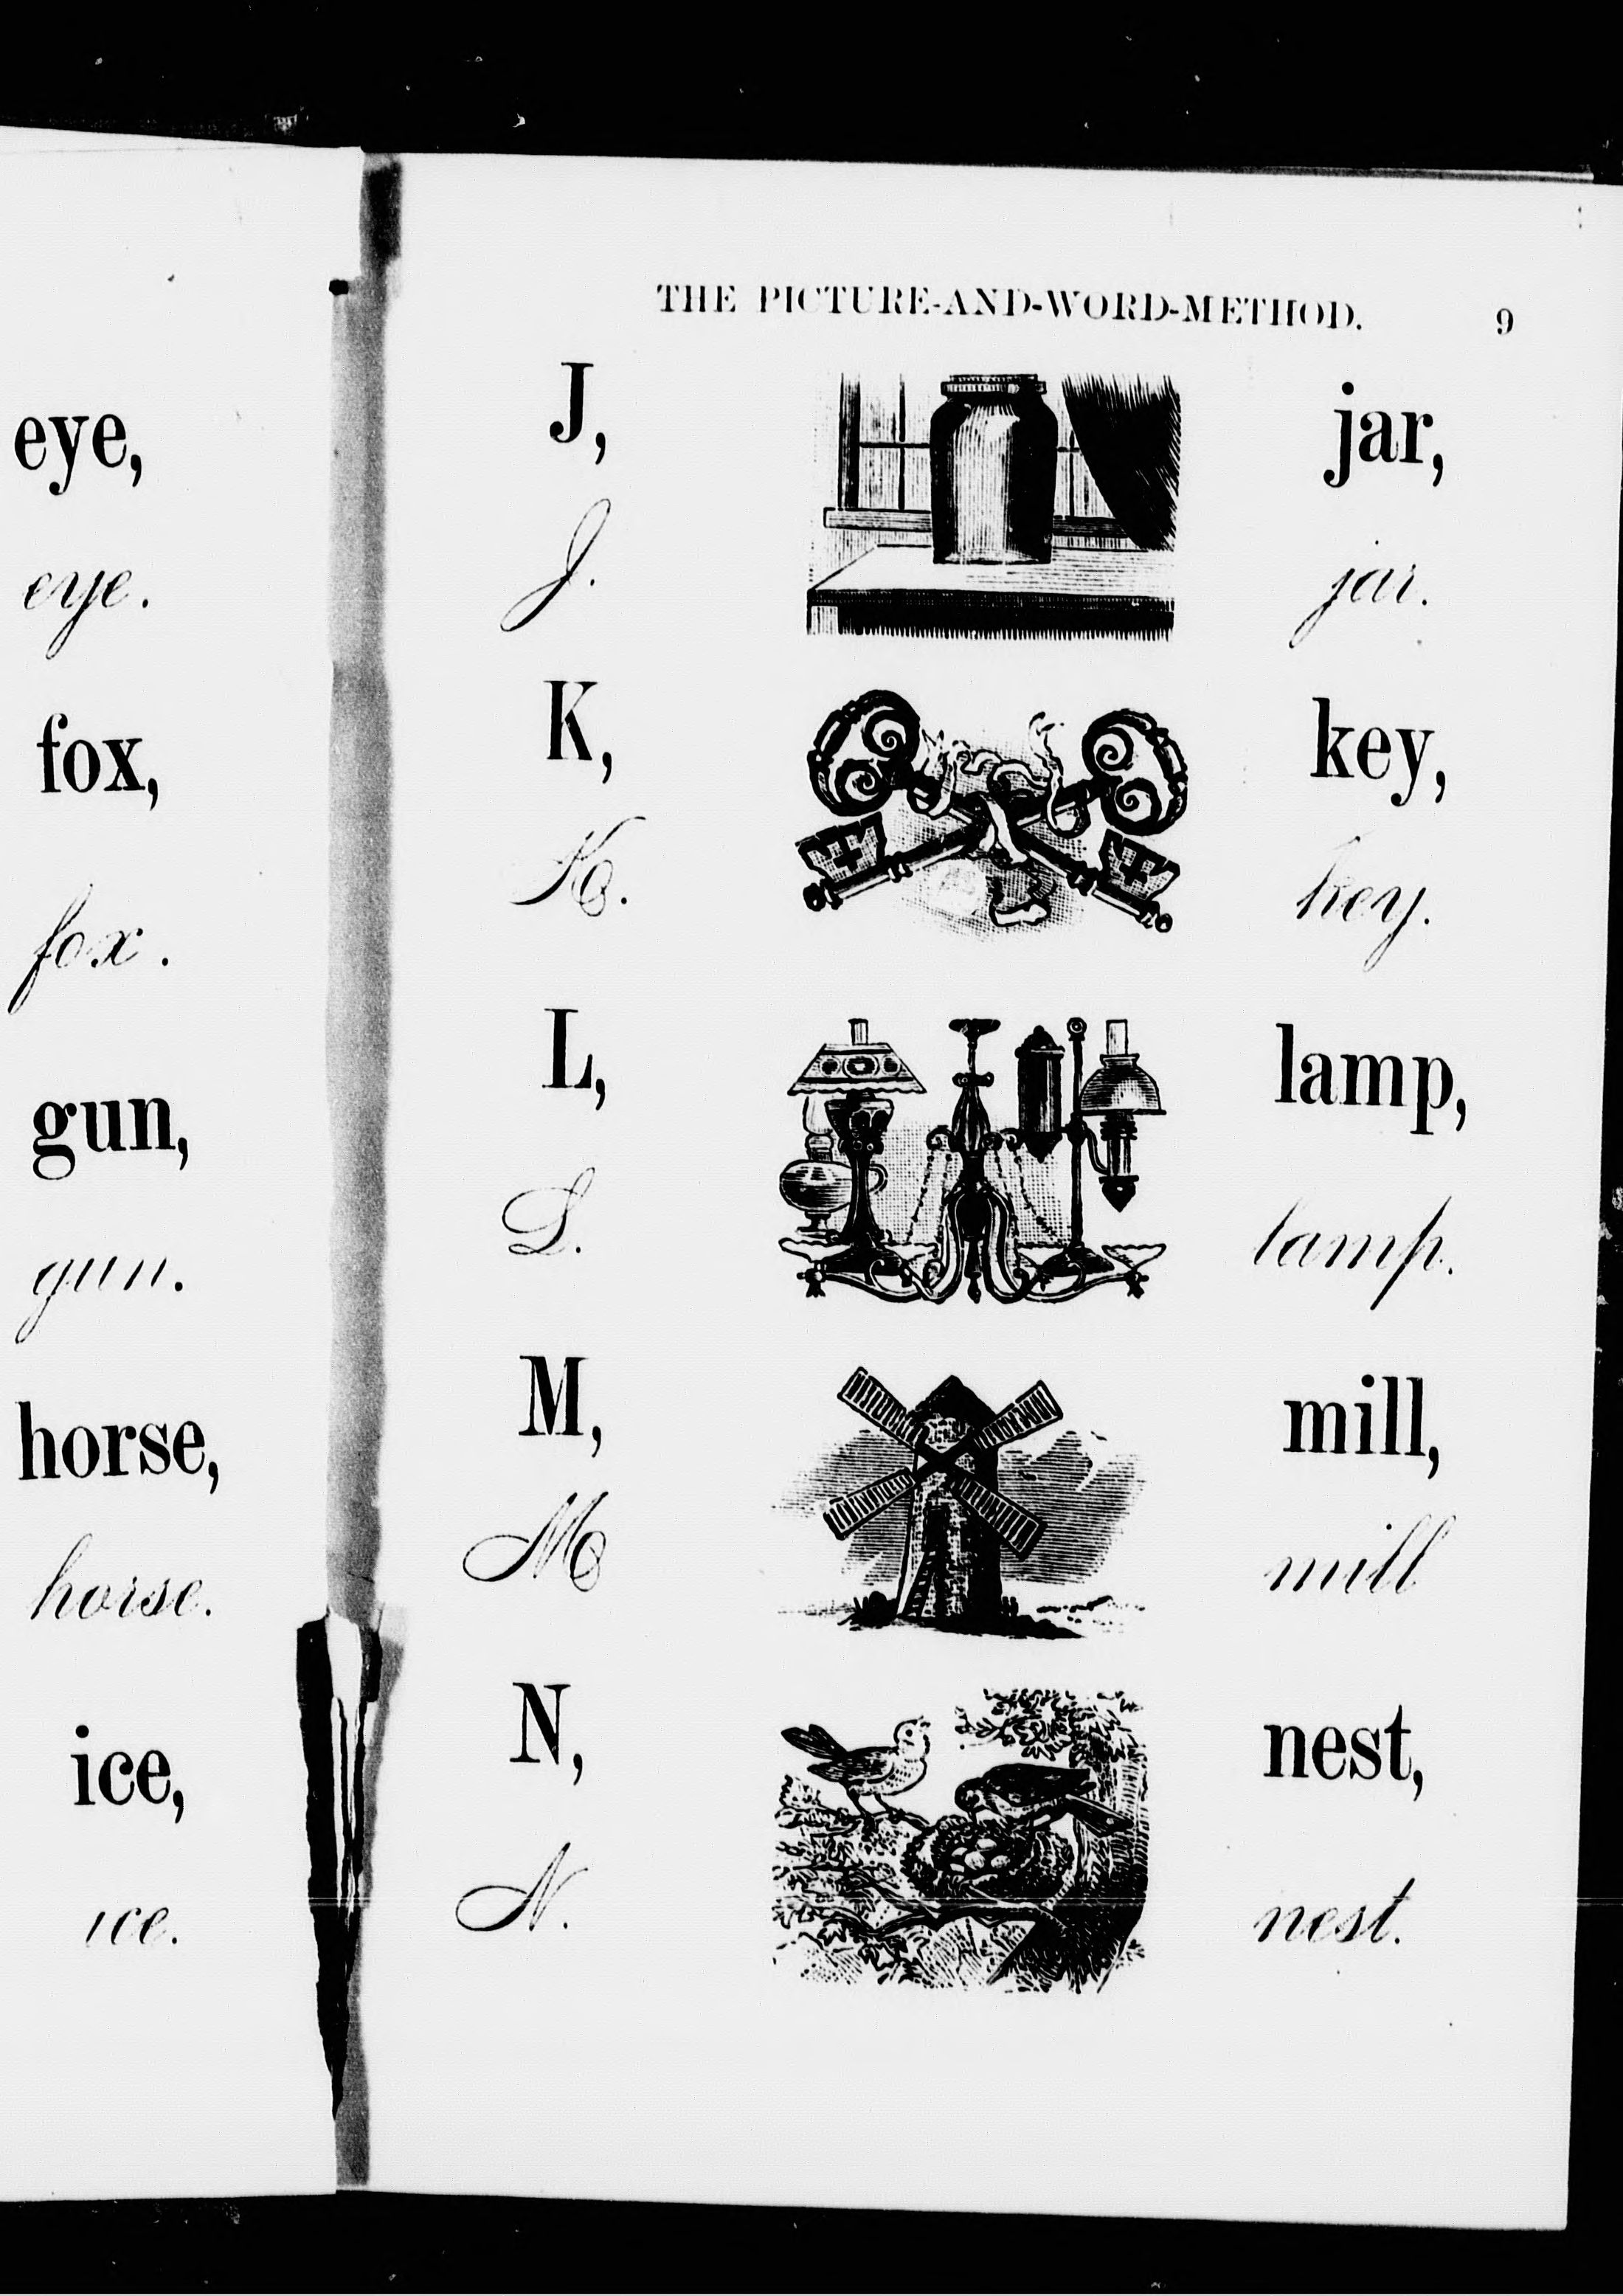 eye,
eye.
fox,
fox.
gun,
gun.
horse,
horse.
ice,
ice.
THE PICTURE-AND-WORD-METHOD. 9
J, jar,
J. jar.
K, key,
K. key.
L, lamp,
L. lamp.
M, mill,
M mill
N, nest,
N. nest.